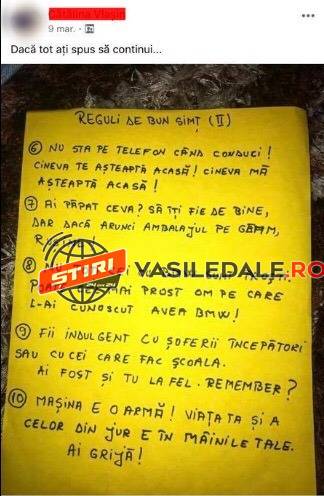 Cătălina Vlașin
9 mar.
Dacă tot ați spus să continui...
REGULI DE BUN SIMȚ (II)
⑥ NU STA PE TELEFON CÂND CONDUCI!
CINEVA TE AȘTEAPTĂ ACASĂ! CINEVA MĂ
AȘTEAPTĂ ACASĂ!
⑦ AI PĂPAT CEVA? SĂ ÎȚI FIE DE BINE,
DAR DACĂ ARUNCI AMBALAJUL PE GEAM,
⑧
STIRI VASILEDALE.RO
24 din 24
PROST OM PE CARE
L-AI CUNOSCUT AVEA BMW!
⑨ FII INDULGENT CU ȘOFERII ÎNCEPĂTORI
SAU CU CEI CARE FAC ȘCOALA.
AI FOST ȘI TU LA FEL. REMEMBER?
⑩ MAȘINA E O ARMĂ! VIAȚA TA ȘI A
CELOR DIN JUR E ÎN MÂINILE TALE.
AI GRIJĂ!